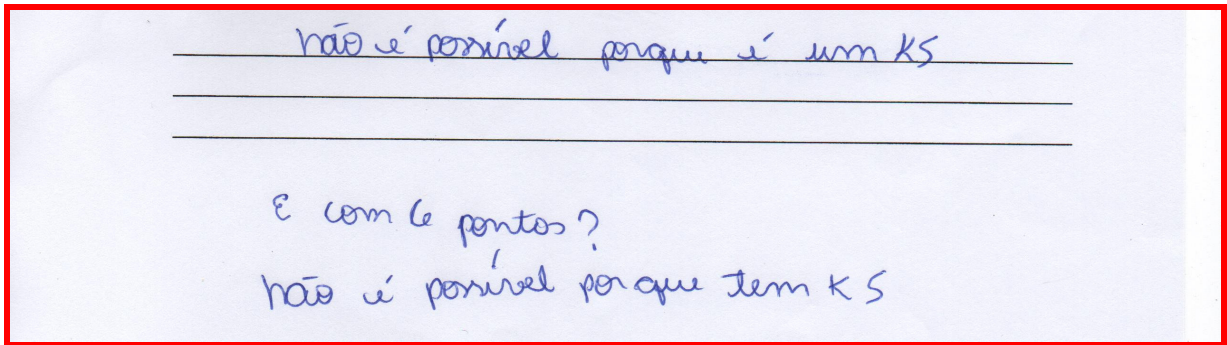 Não é possível porque é um K5
E com 6 pontos?
Não é possível porque tem K5